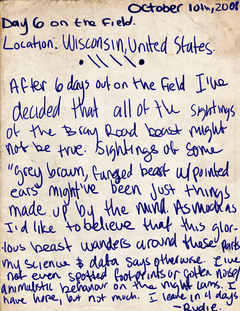 October 10th, 2008
Day 6 on the field.
Location: Wisconsin, United States.
After 6 days out on the field I've
decided that all of the sightings
of the Bray Road beast might
not be true. Sightings of some
"grey brown, fanged beast w/ pointed
ears" might've been just things
made up by the mind. As much as
I'd like to believe that this glor-
ious beast wanders around these parts
my science & data says otherwise. I've
not even spotted footprints or gotten noisey
animalistic behaviour on the night cams. I
have hope, but not much. I leave in 4 days
-Rudie.